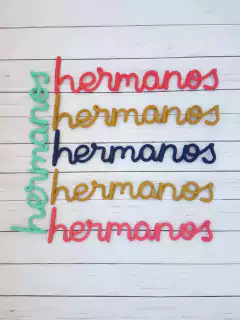 hermanos
hermanos
hermanos
hermanos
hermanos
hermanos